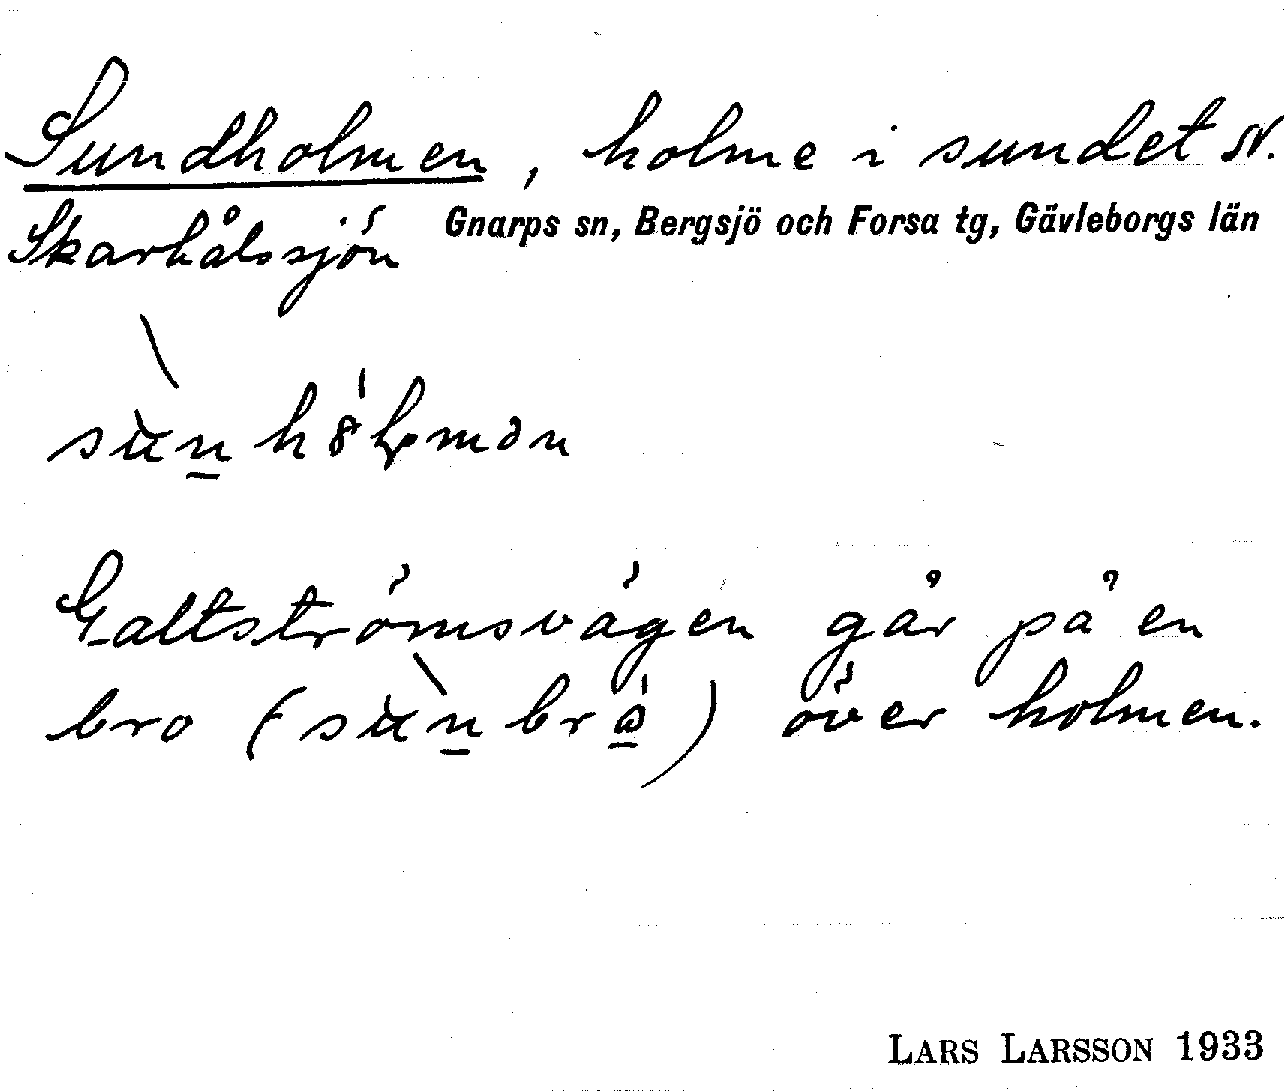 Sundholmen, holme i sundet sv.
Skarhålssjön Gnarps sn, Bergsjö och Forsa tg, Gävleborgs län
Galtströmsvägen går på en
bro ( ) över holmen.
LARS LARSSON 1933